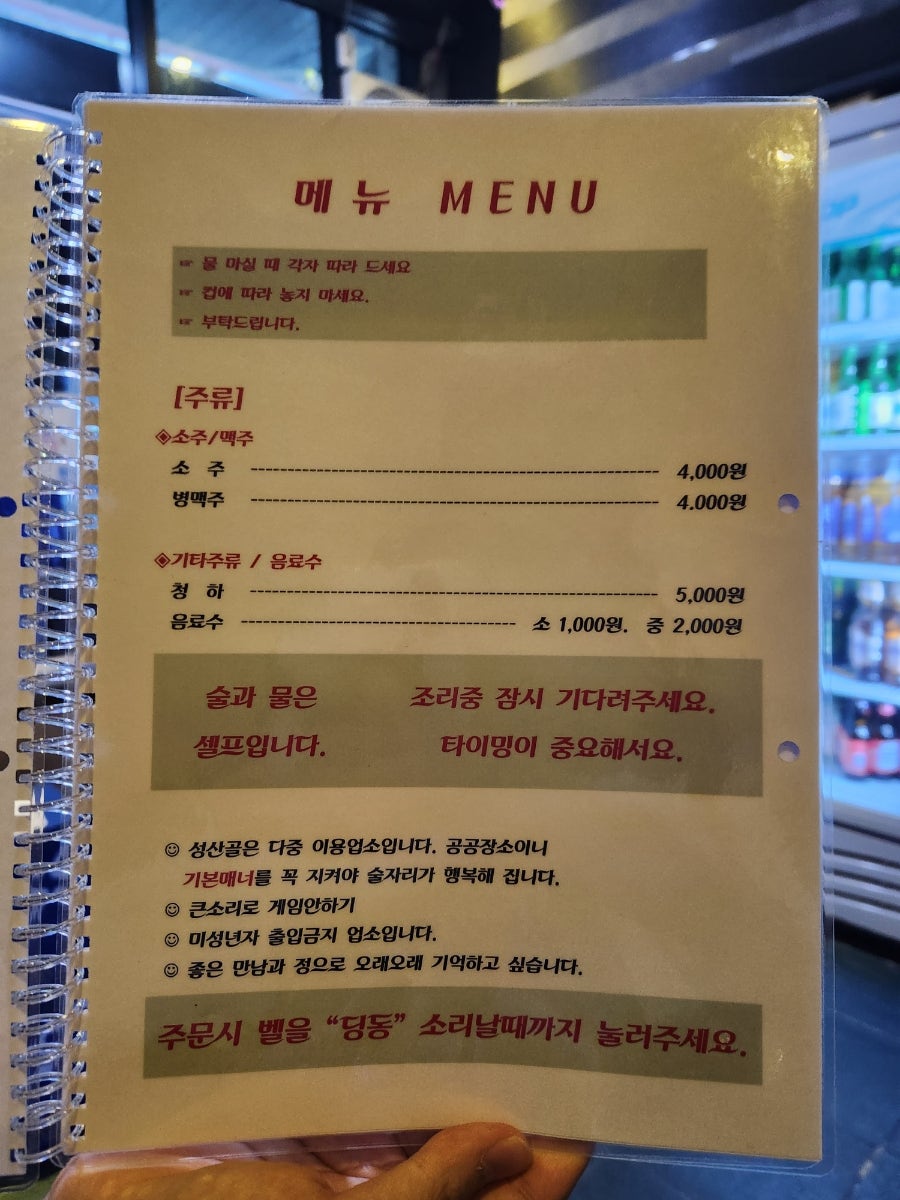 메뉴 MENU
☞ 물 마실 때 각자 따라 드세요
☞ 컵에 따라 놓지 마세요.
☞ 부탁드립니다.
[주류]
◈소주/맥주
소 주 ---------------------------------------------------------- 4,000원
병맥주 ---------------------------------------------------------- 4.000원
◈기타주류 / 음료수
청 하 ---------------------------------------------------------- 5,000원
음료수 --------------------------------------- 소 1,000원. 중 2,000원
술과 물은 조리중 잠시 기다려주세요.
셀프입니다. 타이밍이 중요해서요.
☺ 성산골은 다중 이용업소입니다. 공공장소이니
기본매너를 꼭 지켜야 술자리가 행복해 집니다.
☺ 큰소리로 게임안하기
☺ 미성년자 출입금지 업소입니다.
☺ 좋은 만남과 정으로 오래오래 기억하고 싶습니다.
주문시 벨을 “딩동” 소리날때까지 눌러주세요.